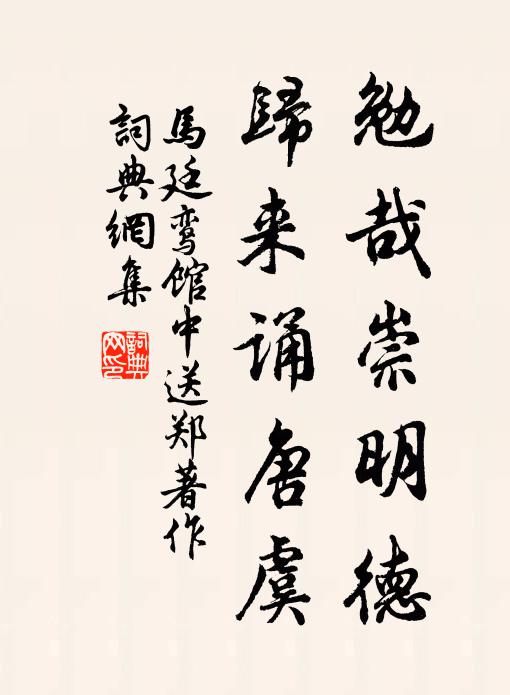 勉哉崇明德
歸来诵唐虞
馬廷鸾館中送郑著作
詞典網集
詞典网印